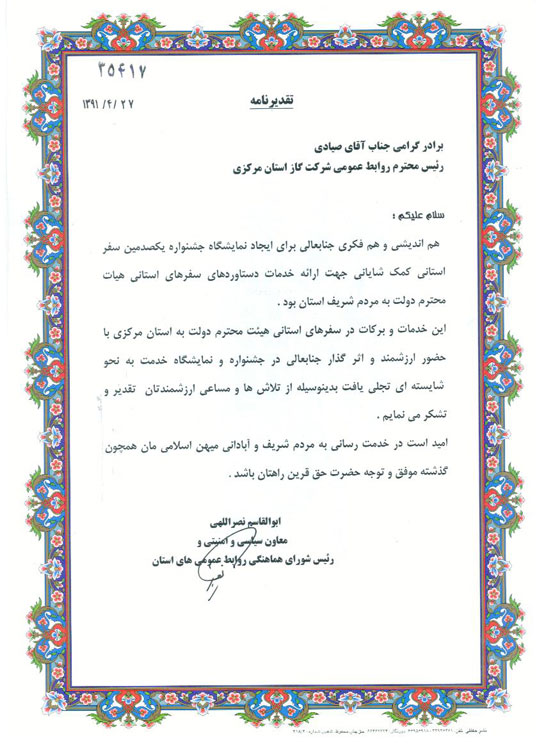 ۳۵۴۱۷
۱۳۹۱/۴/۲۷
تقدیرنامه
برادر گرامی جناب آقای صیادی
رئیس محترم روابط عمومی شرکت گاز استان مرکزی
سلام علیکم ؛
هم اندیشی و هم فکری جنابعالی برای ایجاد نمایشگاه جشنواره یکصدمین سفر
استانی کمک شایانی جهت ارائه خدمات دستاوردهای سفرهای استانی هیات
محترم دولت به مردم شریف استان بود .
این خدمات و برکات در سفرهای استانی هیئت محترم دولت به استان مرکزی با
حضور ارزشمند و اثر گذار جنابعالی در جشنواره و نمایشگاه خدمت به نحو
شایسته ای تجلی یافت بدینوسیله از تلاش ها و مساعی ارزشمندتان تقدیر و
تشکر می نمایم .
امید است در خدمت رسانی به مردم شریف و آبادانی میهن اسلامی مان همچون
گذشته موفق و توجه حضرت حق قرین راهتان باشد .
ابوالقاسم نصراللهی
معاون سیاسی و امنیتی و
رئیس شورای هماهنگی روابط عمومی های استان